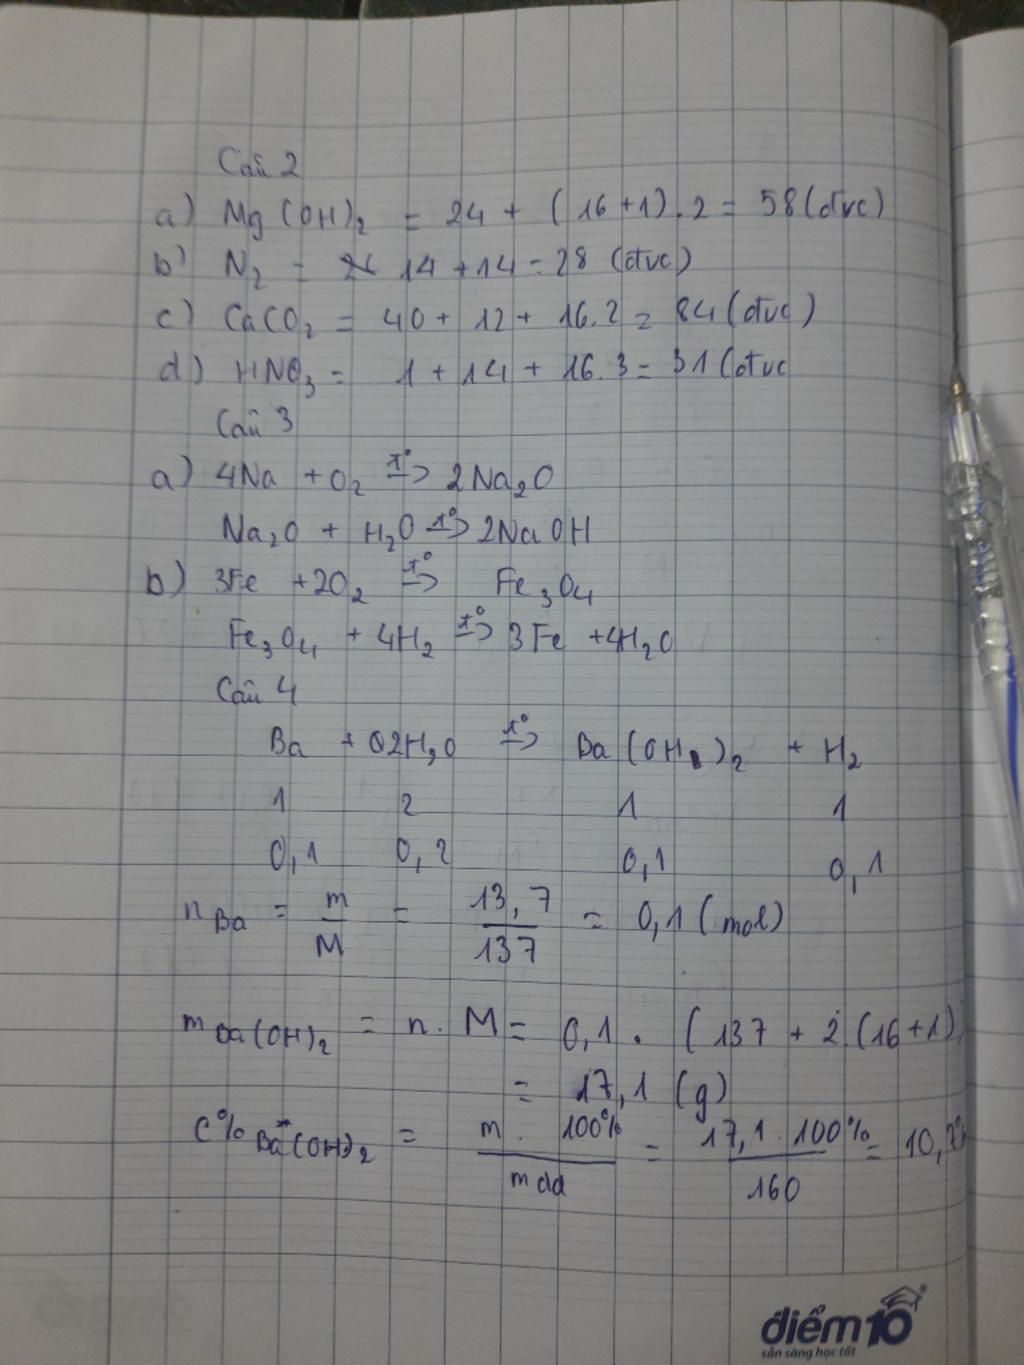 Câu 2
a) Mg(OH)₂ = 24 + (16+1).2 = 58 (đvc)
b) N₂ = 14 + 14 = 28 (đvc)
c) CaCO₂ = 40 + 12 + 16.2 = 84 (đvc)
d) HNO₃ = 1 + 14 + 16.3 = 31 (đvc
Câu 3
a) 4Na + O₂ t° → 2Na₂O
Na₂O + H₂O t° → 2NaOH
b) 3Fe + 2O₂ t° → Fe₃O₄
Fe₃O₄ + 4H₂ t° → 3Fe + 4H₂O
Câu 4
Ba + 2H₂O t° → Ba(OH)₂ + H₂
1 2 1 1
0,1 0,2 0,1 0,1
n Ba = m/M = 13,7/137 = 0,1 (mol)
m Ba(OH)₂ = n . M = 0,1 . (137 + 2 (16+1)
= 17,1 (g)
C% Ba(OH)₂ = m . 100%/mdd = 17,1 . 100%/160 = 10,7%
điểm10
sẵn sàng học tốt